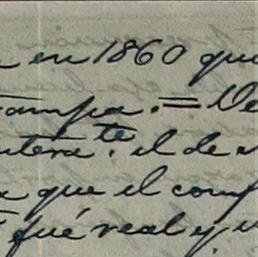 en 1860 que
campa. = De
ntera.te el de
a que el comp
fué real y